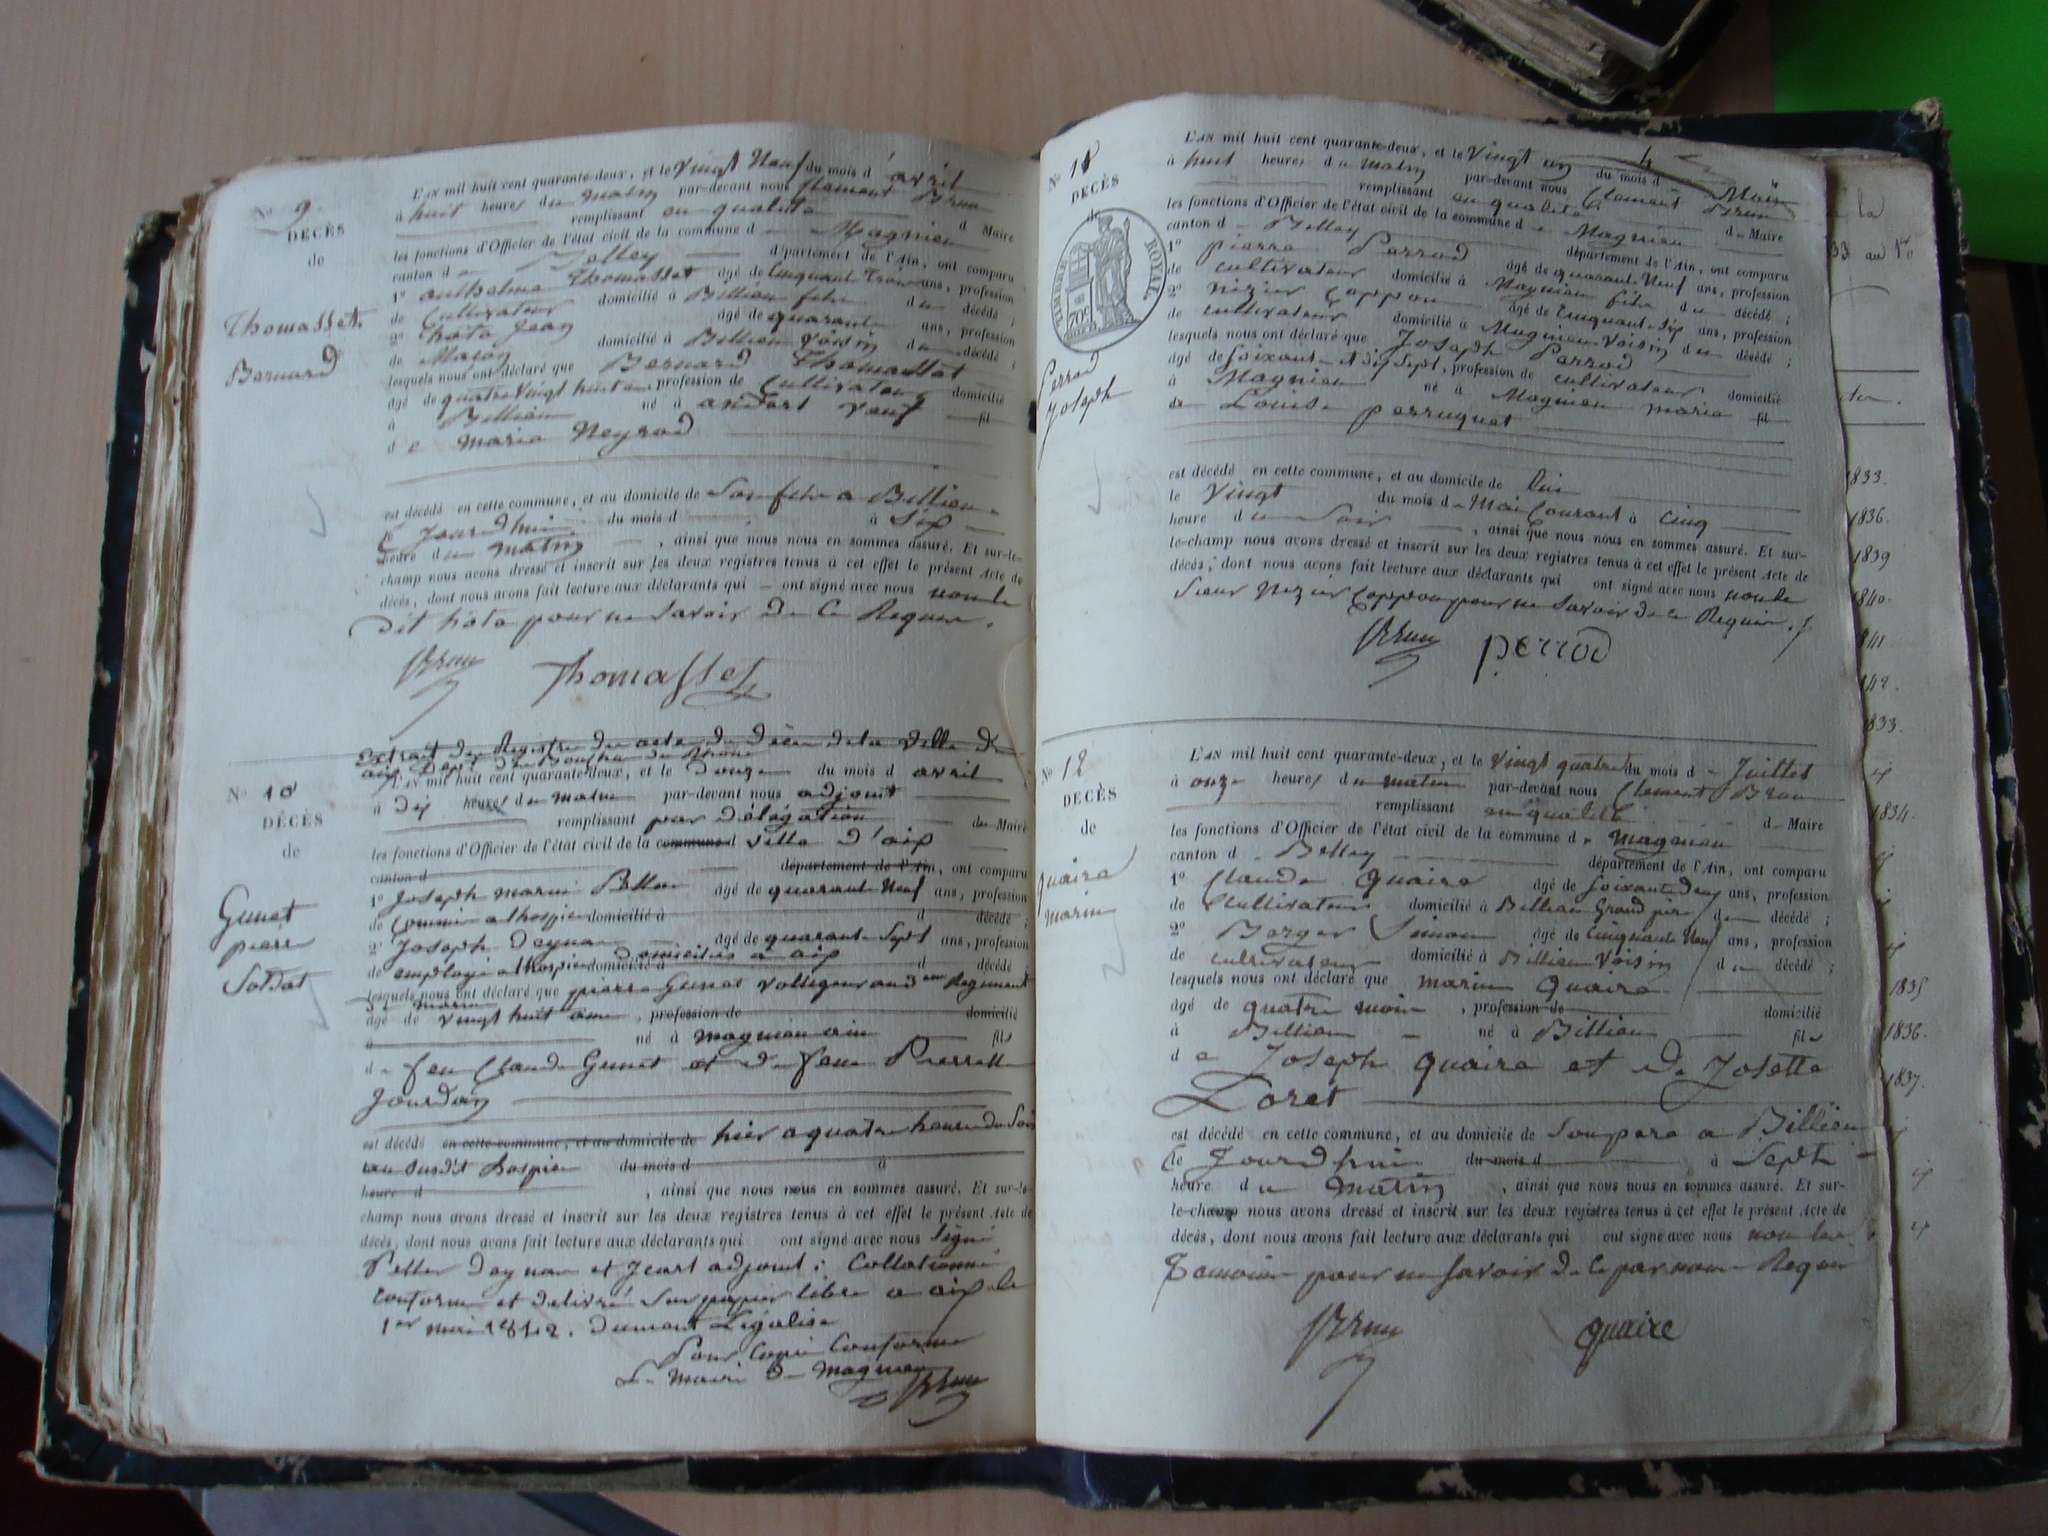 N° 9
DECÈS
de
Thomasset
Bernard
L'AN mil huit cent quarante-deux, et le vingt Neuf du mois d'avril
à huit heures du matin par-devant nous Clement Brun
remplissant en qualité d Maire
les fonctions d'Officier de l'état civil de la commune de Magnieu
canton de Belley département de l'Ain, ont comparu
1° anthelme Thomasset âgé de Cinquant Trois ans, profession
de Cultivateur domicilié à Billieu fils du décédé ;
2° hote Jean âgé de quarante ans, profession
de Maçon domicilié à Billieu Voisin du décédé ;
lesquels nous ont déclaré que Bernard Thomasset
âgé de quatre vingt huit ans, profession de Cultivateur domicilié
à Billieu né à andert veuf fil
de marie Neyrod
est décédé en cette commune, et au domicile de Son fils a Billieu
le Jourd'hui du mois d à Six
heure du matin , ainsi que nous nous en sommes assuré. Et sur-le-
champ nous avons dressé et inscrit sur les deux registres tenus à cet effet le présent Acte de
décès, dont nous avons fait lecture aux déclarants qui ont signé avec nous non le
Dit hote pour ne Savoir de ce Requis.
Brun Thomasset
N° 10
DÉCÈS
de
Gunet
pierre
Soldat
Extrait des Registre des acte de décès de la Ville d'
aix Dept des Bouches du Rhone
L'AN mil huit cent quarante-deux, et le douze du mois d avril
à dix heures du matin par-devant nous adjoint
remplissant par délégation du Maire
les fonctions d'Officier de l'état civil de la commune d Ville d'aix
canton d département de l'Ain, ont comparu
1° Joseph marie Pellen âgé de quarante Neuf ans, profession
de Commis a l'hospice domicilié à d décédé ;
2° Joseph Dayna âgé de quarante Sept ans, profession
domiciliés a aix
de employé a l'hospice domicilié à d décédé
lesquels nous ont déclaré que pierre Gunet voltigeur au 3eme Regiment
de marine
âgé de vingt huit ans , profession de domicilié
à né à magnieu ain fils
de feu Claude Gunet et de feue Pierrette
Jourdan
est décédé en cette commune, et au domicile de hier a quatre heures du Soir
au Susdit hospice du mois d à
heure d , ainsi que nous nous en sommes assuré. Et sur-le-
champ nous avons dressé et inscrit sur les deux registres tenus à cet effet le présent Acte de
décès, dont nous avons fait lecture aux déclarants qui ont signé avec nous Signé
Pellen Dayna et Jcart adjoint. Collationné
Conforme et délivré Sur papier libre a aix le
1er mai 1842. Dumont Légalisé
Pour Copie Conforme
Le Maire de Magnieu
Brun
N° 11
DECÈS
de
TIMBRE ROYAL
70c
Perrod
Joseph
L'AN mil huit cent quarante-deux, et le Vingt un du mois d Mai
à huit heures du matin par-devant nous Clement Brun
remplissant en qualité de Maire
les fonctions d'Officier de l'état civil de la commune de Magnieu
canton de Belley département de l'Ain, ont comparu
1° pierre Perrod âgé de quarante Neuf ans, profession
de cultivateur domicilié à Magnieu fils du décédé ;
2° Nizier Coppon âgé de Cinquante Six ans, profession
de cultivateur domicilié à Magnieu Voisin du décédé ;
lesquels nous ont déclaré que Joseph Perrod
âgé de Soixante et dix Sept, profession de cultivateur domicilié
à Magnieu né à Magnieu marie fil
de Louise perruquet
est décédé en cette commune, et au domicile de lui
le Vingt du mois de Mai Courant à cinq
heure du Soir , ainsi que nous nous en sommes assuré. Et sur-
le-champ nous avons dressé et inscrit sur les deux registres tenus à cet effet le présent Acte de
décès ; dont nous avons fait lecture aux déclarants qui ont signé avec nous non le
Sieur Nizier Coppon pour ne Savoir de ce Requis.
Brun perrod
N° 12
DÉCÈS
de
quaire
marin
L'AN mil huit cent quarante-deux, et le Vingt quatre du mois de Juillet
à onze heures du matin par-devant nous Clement Brun
remplissant en qualité de Maire
les fonctions d'Officier de l'état civil de la commune de magnieu
canton d Belley département de l'Ain, ont comparu
1° Claude Quaire âgé de Soixante dix ans, profession
de Cultivateur domicilié à Billieu Grand père du décédé ;
2° Berger Simon âgé de Cinquante Neuf ans, profession
de cultivateur domicilié à Billieu Voisin du décédé ;
lesquels nous ont déclaré que marin Quaire
âgé de quatre mois , profession de domicilié
à Billieu né à Billieu fils
de Joseph quaire et de Josette
Loret
est décédé en cette commune, et au domicile de Son pere a Billieu
le Jourd'hui du mois d à Sept
heure du Matin , ainsi que nous nous en sommes assuré. Et sur-
le-champ nous avons dressé et inscrit sur les deux registres tenus à cet effet le présent Acte de
décès, dont nous avons fait lecture aux déclarants qui ont signé avec nous non le
Temoin pour ne Savoir de ce par nous Requis
Brun quaire
à la
33 au 1er
1833.
1836.
1839
1840.
1841
1842.
1833.
1834.
1835
1836.
1837.